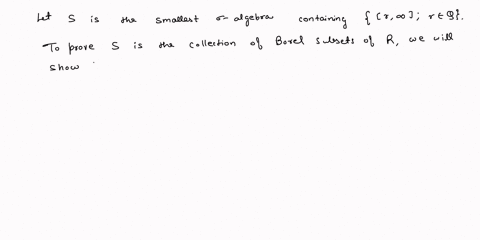 Let S is the smallest σ-algebra containing { (r, ∞]; r ∈ Q}.
To prove S is the collection of Borel subsets of R, we will
show